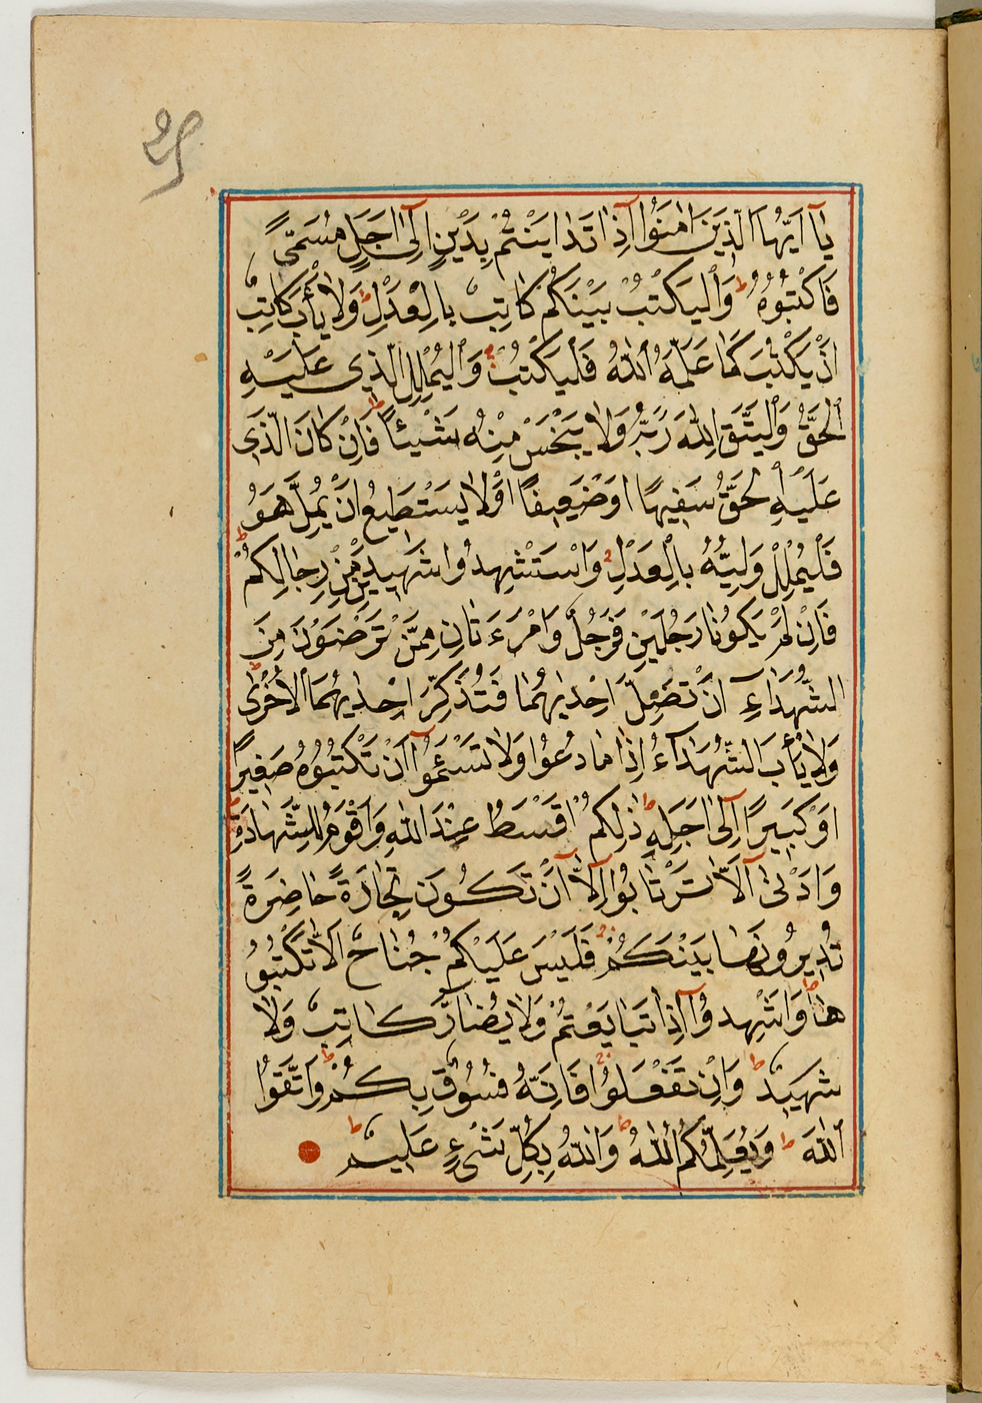 يَآ اَيُّهَا الَّذِينَ اٰمَنُوٓا اِذَا تَدَايَنْتُمْ بِدَيْنٍ اِلٰٓى اَجَلٍ مُسَمًّى
فَاكْتُبُوهُ ط وَلْيَكْتُبْ بَيْنَكُمْ كَاتِبٌ بِالْعَدْلِ ط وَلَا يَأْبَ كَاتِبٌ
اَنْ يَكْتُبَ كَمَا عَلَّمَهُ اللّٰهُ فَلْيَكْتُبْ وَلْيُمْلِلِ الَّذِى عَلَيْهِ
الْحَقُّ وَلْيَتَّقِ اللّٰهَ رَبَّهُ وَلَا يَبْخَسْ مِنْهُ شَيْئًا ط فَاِنْ كَانَ الَّذِى
عَلَيْهِ الْحَقُّ سَفِيهًا اَوْ ضَعِيفًا اَوْ لَا يَسْتَطِيعُ اَنْ يُمِلَّ هُوَ
فَلْيُمْلِلْ وَلِيُّهُ بِالْعَدْلِ ط وَاسْتَشْهِدُوا شَهِيدَيْنِ مِنْ رِجَالِكُمْ
فَاِنْ لَمْ يَكُونَا رَجُلَيْنِ فَرَجُلٌ وَامْرَءَتَانِ مِمَّنْ تَرْضَوْنَ مِنَ
الشُّهَدَاءِ اَنْ تَضِلَّ اِحْدٰيهُمَا فَتُذَكِّرَ اِحْدٰيهُمَا الْاُخْرٰى ط
وَلَا يَأْبَ الشُّهَدَآءُ اِذَا مَا دُعُوا وَلَا تَسْئَمُوٓا اَنْ تَكْتُبُوهُ صَغِيرًا
اَوْ كَبِيرًا اِلٰٓى اَجَلِهِ ط ذٰلِكُمْ اَقْسَطُ عِنْدَ اللّٰهِ وَاَقْوَمُ لِلشَّهَادَةِ
وَاَدْنٰىٓ اَلَّا تَرْتَابُوٓا اِلَّآ اَنْ تَكُونَ تِجَارَةً حَاضِرَةً
تُدِيرُونَهَا بَيْنَكُمْ فَلَيْسَ عَلَيْكُمْ جُنَاحٌ اَلَّا تَكْتُبُو
هَا ط وَاَشْهِدُوٓا اِذَا تَبَايَعْتُمْ وَلَا يُضَارَّ كَاتِبٌ وَلَا
شَهِيدٌ ط وَاِنْ تَفْعَلُوا فَاِنَّهُ فُسُوقٌ بِكُمْ ط وَاتَّقُوا
اللّٰهَ ط وَيُعَلِّمُكُمُ اللّٰهُ ط وَاللّٰهُ بِكُلِّ شَىْءٍ عَلِيمٌ ط